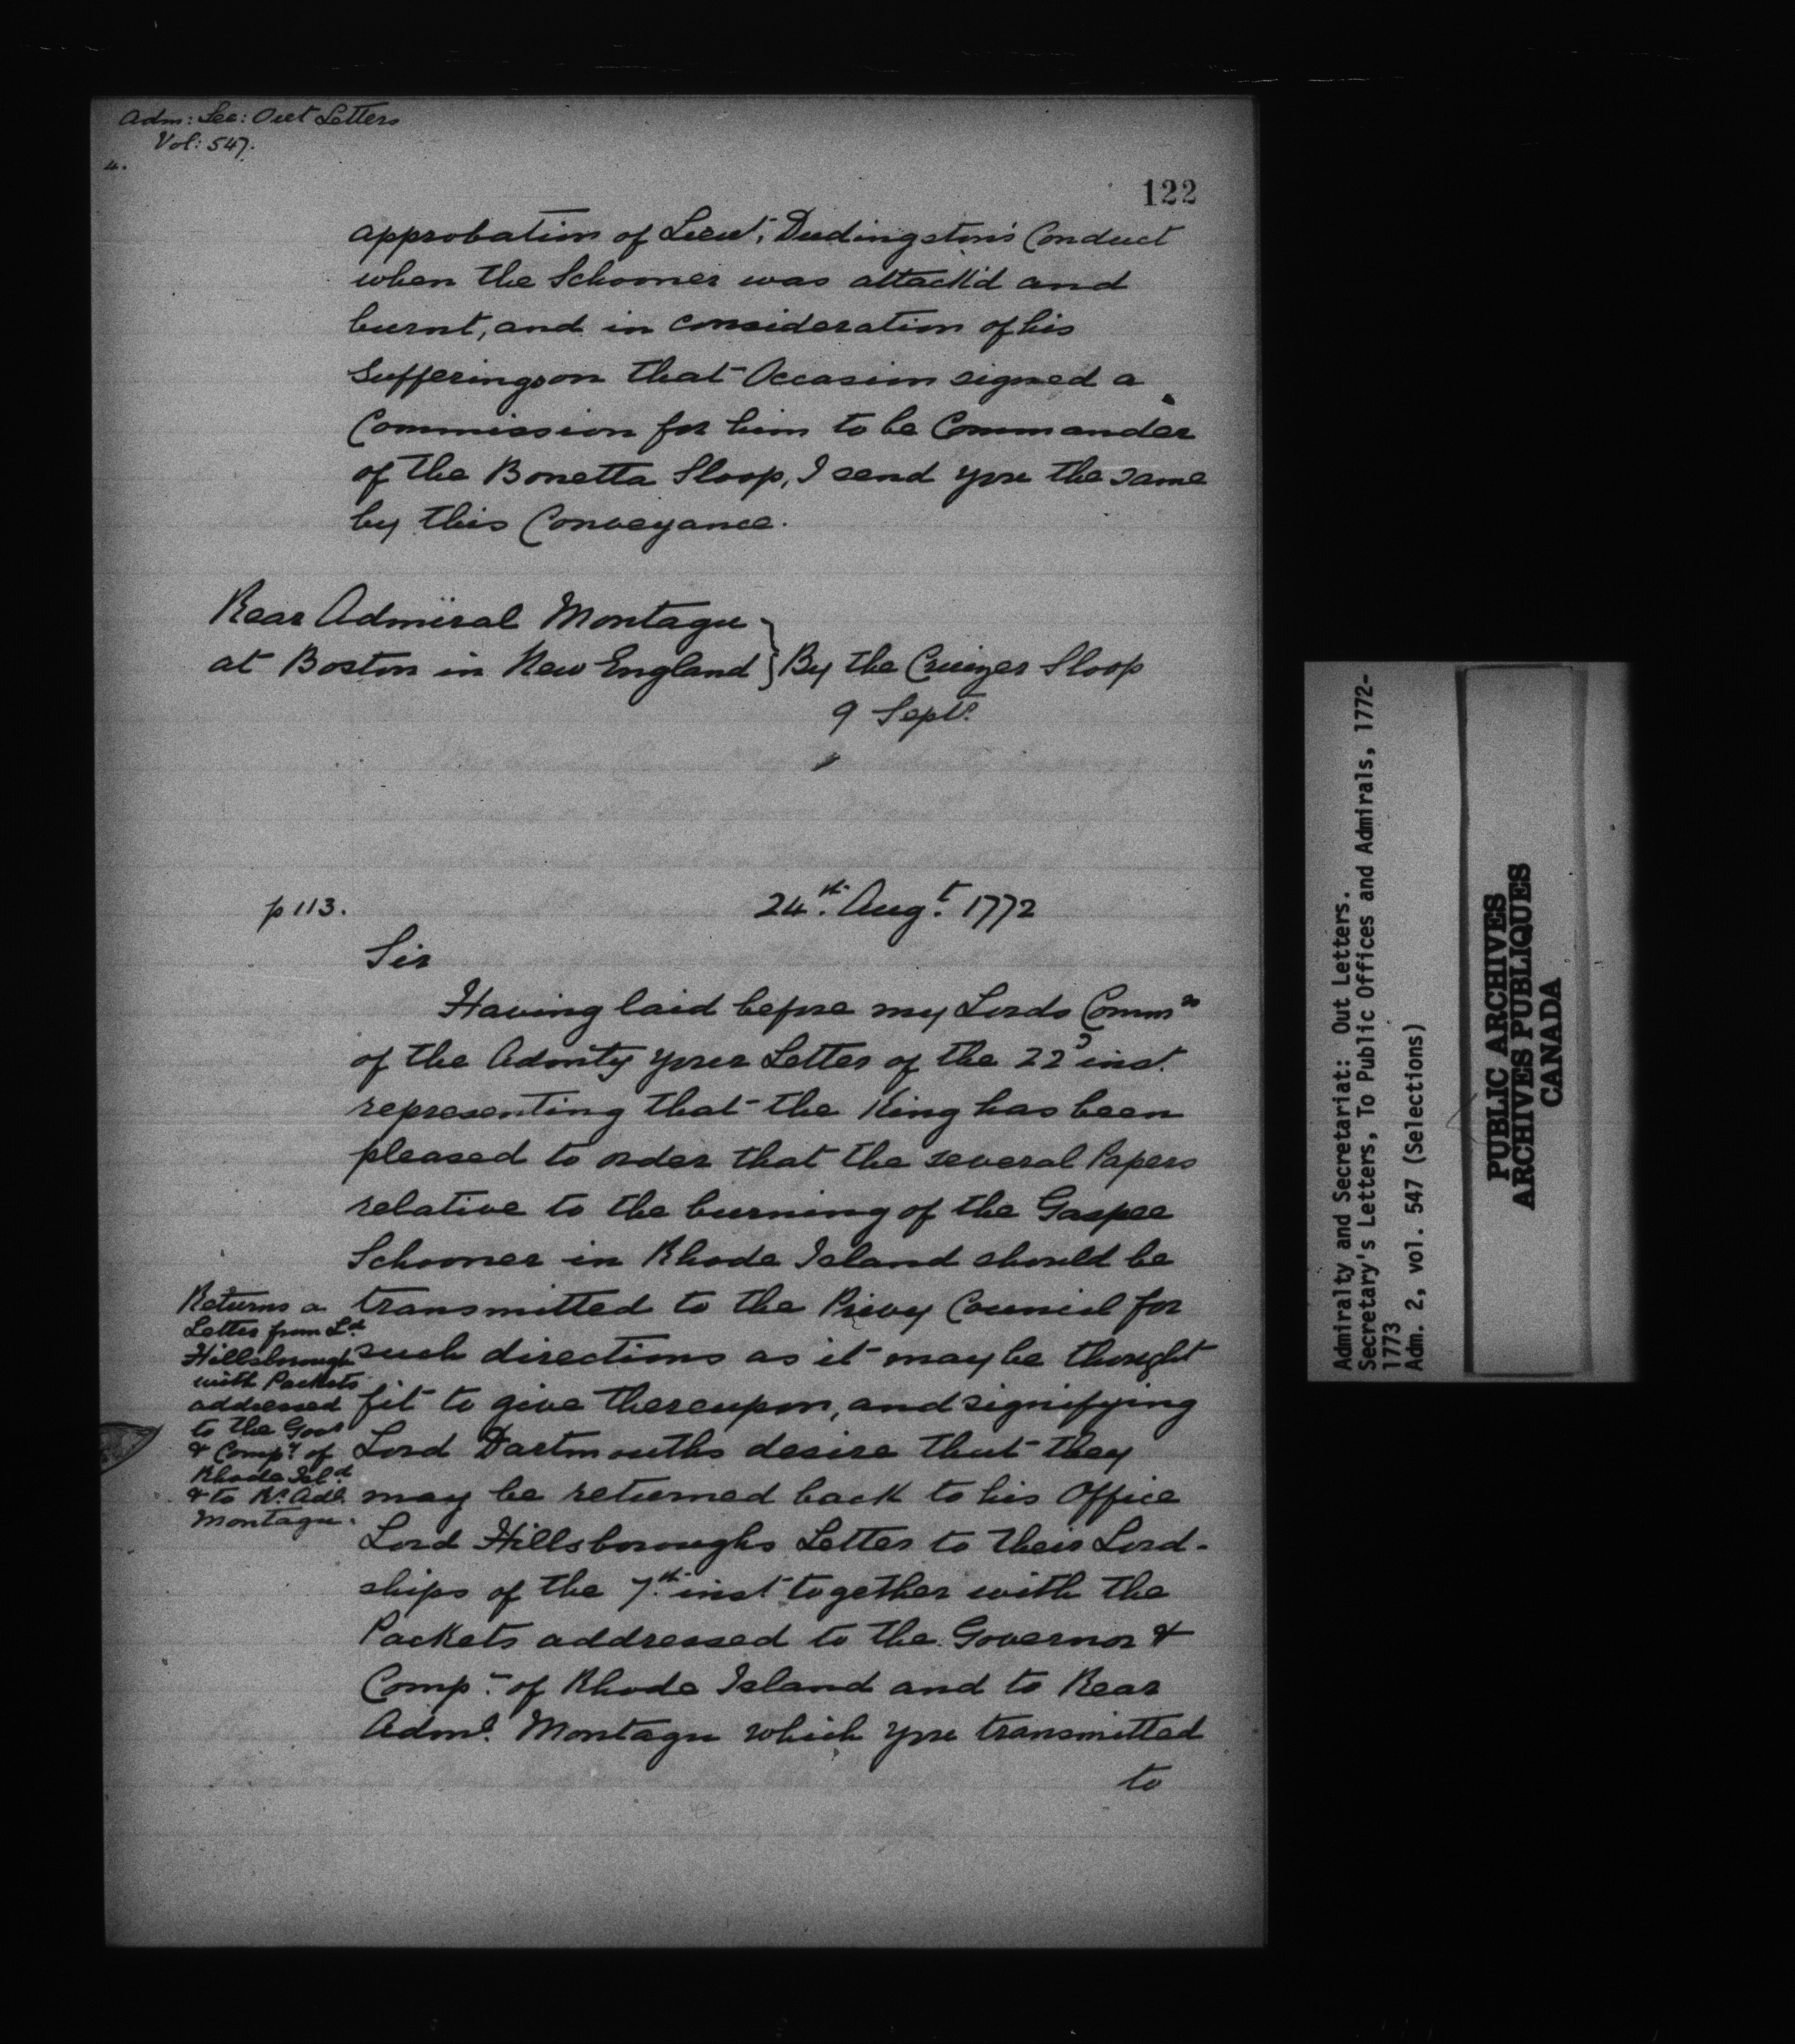 Adm: Sec: Out Letters
Vol: 547.
4.
122
approbation of Lieut. Dudingston's Conduct
when the Schooner was attack'd and
burnt, and in consideration of his
Sufferings on that Occasion signed a
Commission for him to be Commander
of the Bonetta Sloop, I send you the same
by this Conveyance.
Rear Admiral Montagu
at Boston in New England } By the Cruizer Sloop
9 Septr.
p 113.
24th. Augt. 1772
Sir
Having laid before my Lords Commrs
of the Admty your Letter of the 22d inst.
representing that the King has been
pleased to order that the several Papers
relative to the burning of the Gaspee
Schooner in Rhode Island should be
transmitted to the Privy Council for
such directions as it may be thought
fit to give thereupon, and signifying
Lord Dartmouths desire that they
may be returned back to his Office
Lord Hillsboroughs Letter to their Lord-
ships of the 7th. inst together with the
Packets addressed to the Governor &
Compy. of Rhode Island and to Rear
Adml. Montagu which you transmitted
to
Returns a
Letter from Ld.
Hillsborough
with Packets
addressed
to the Govr
& Compy. of
Rhode Isld.
& to Rr. Adl.
Montagu.
Admiralty and Secretariat: Out Letters.
Secretary's Letters, To Public Offices and Admirals, 1772-
1773
Adm. 2, vol. 547 (Selections)
PUBLIC ARCHIVES
ARCHIVES PUBLIQUES
CANADA